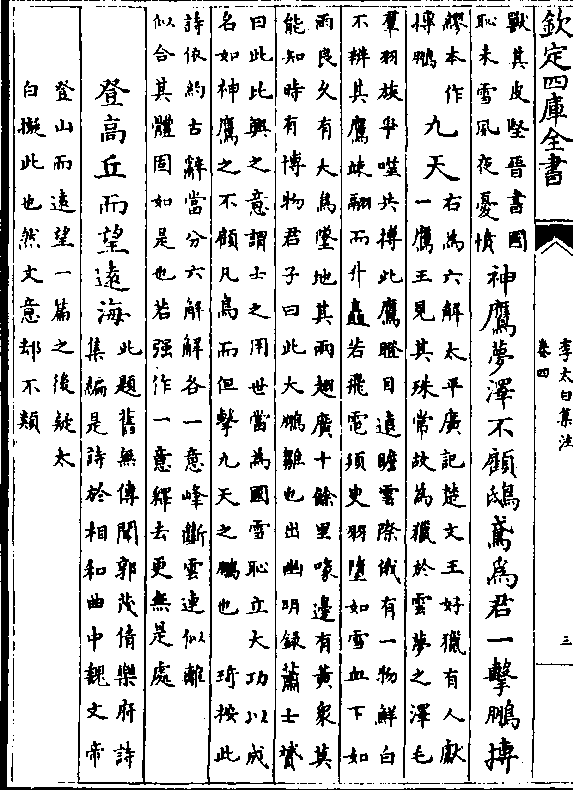 欽定四庫全書
李太白集注
卷四
三
獸其皮堅晉書國
恥未雪風夜憂憤
神鷹夢澤不顧鴟鳶為君一擊鵬搏
繆本作
搏鵬
九天
右為六解太平廣記楚文王好獵有人獻
一鷹王見其殊常故為獵於雲夢之澤毛
羣羽族爭噬共搏此鷹瞪目遠瞻雲際俄有一物鮮白
不辨其鷹竦翮而升矗若飛電須臾羽墮如雪血下如
雨良久有大鳥墜地其兩翅廣十餘里喙邊有黃衆莫
能知時有博物君子曰此大鵬雛也出幽明録蕭士贇
曰此比興之意謂士之用世當為國雪恥立大功以成
名如神鷹之不顧凡鳥而但擊九天之鵬也 琦按此
詩依約古辭當分六解解各一意峰斷雲連似離
似合其體固如是也若强作一意釋去更無是處
登高丘而望遠海
此題舊無傳聞郭茂倩樂府詩
集編是詩於相和曲中魏文帝
登山而遠望一篇之後疑太
白擬此也然文意却不類